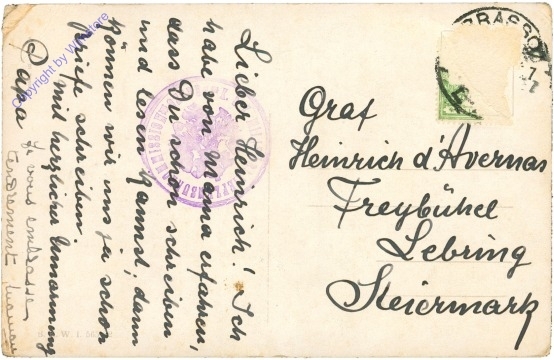 Lieber Heinrich! Ich
habe von Mama erfahren,
dass Du schon schreiben
und lesen kannst; dann
können wir uns ja schon
Briefe schreiben.
Mit herzlicher Umarmung
Papa
Je vous embrasse
tendrement Maman
Graf
Heinrich d'Avernas
Freybühel
Lebring
Steiermark
BRASSO
Copyright by WI Store